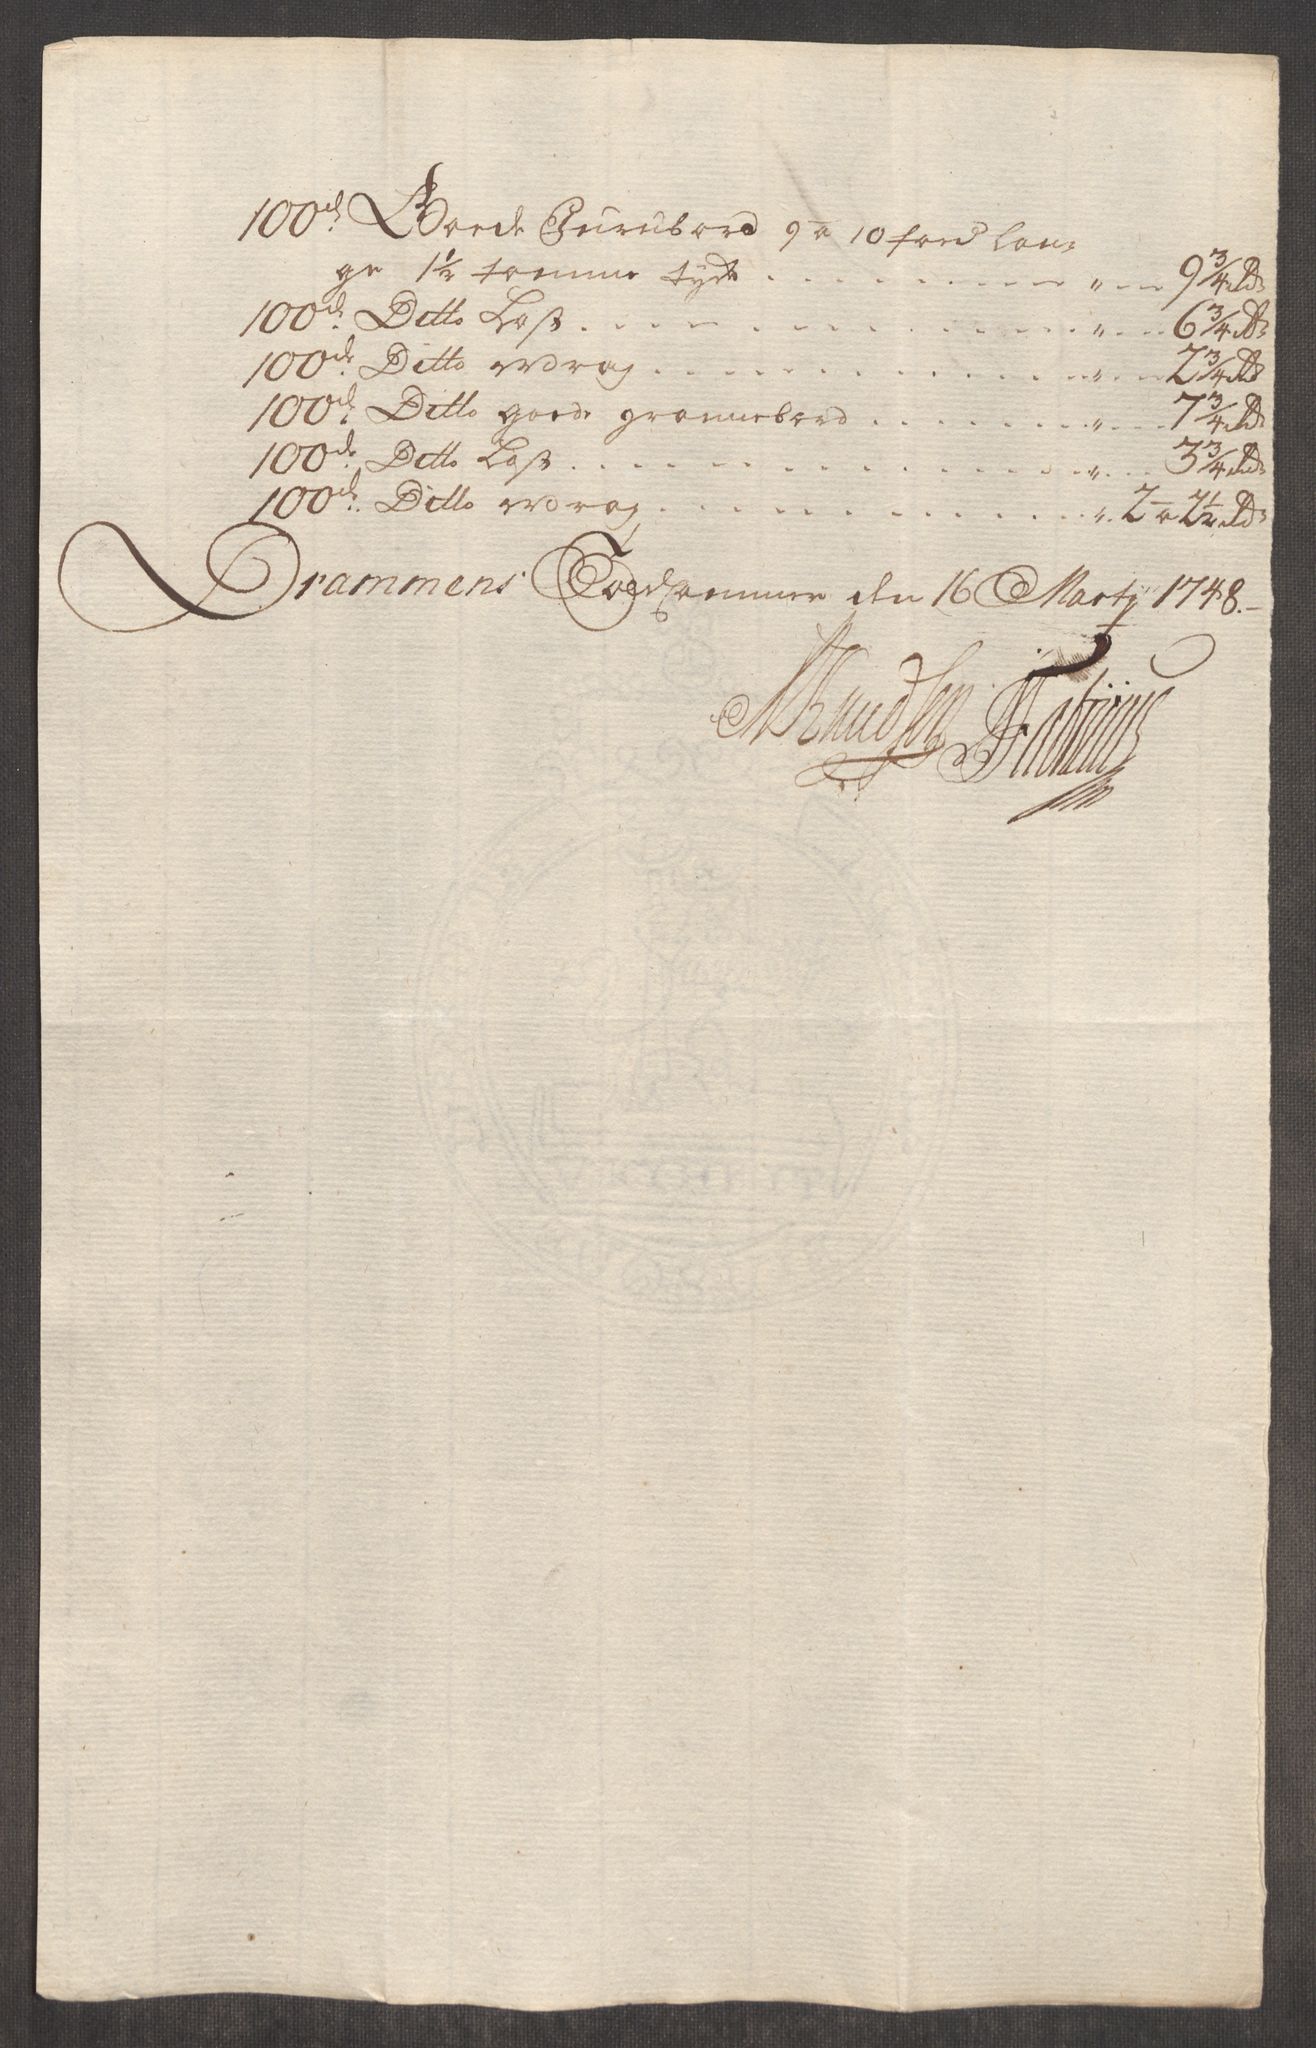 100de Goede Furubord 9 a 10 foed lan-
ge 1½ tomme tyck . . . . . . . . . " 9¾ Rd
100de Ditto Last . . . . . . . . . " 6¾ Rd
100de Ditto wrag . . . . . . . . . " 2¾ Rd
100de Ditto goede grannebord . . . . . . . " 7¾ Rd
100de Ditto Last . . . . . . . . . " 3¾ Rd
100de Ditto wrag . . . . . . . . . " 2 a 2½ Rd
Drammens Toldkammer den 16 Marty 1748.
Knudsen